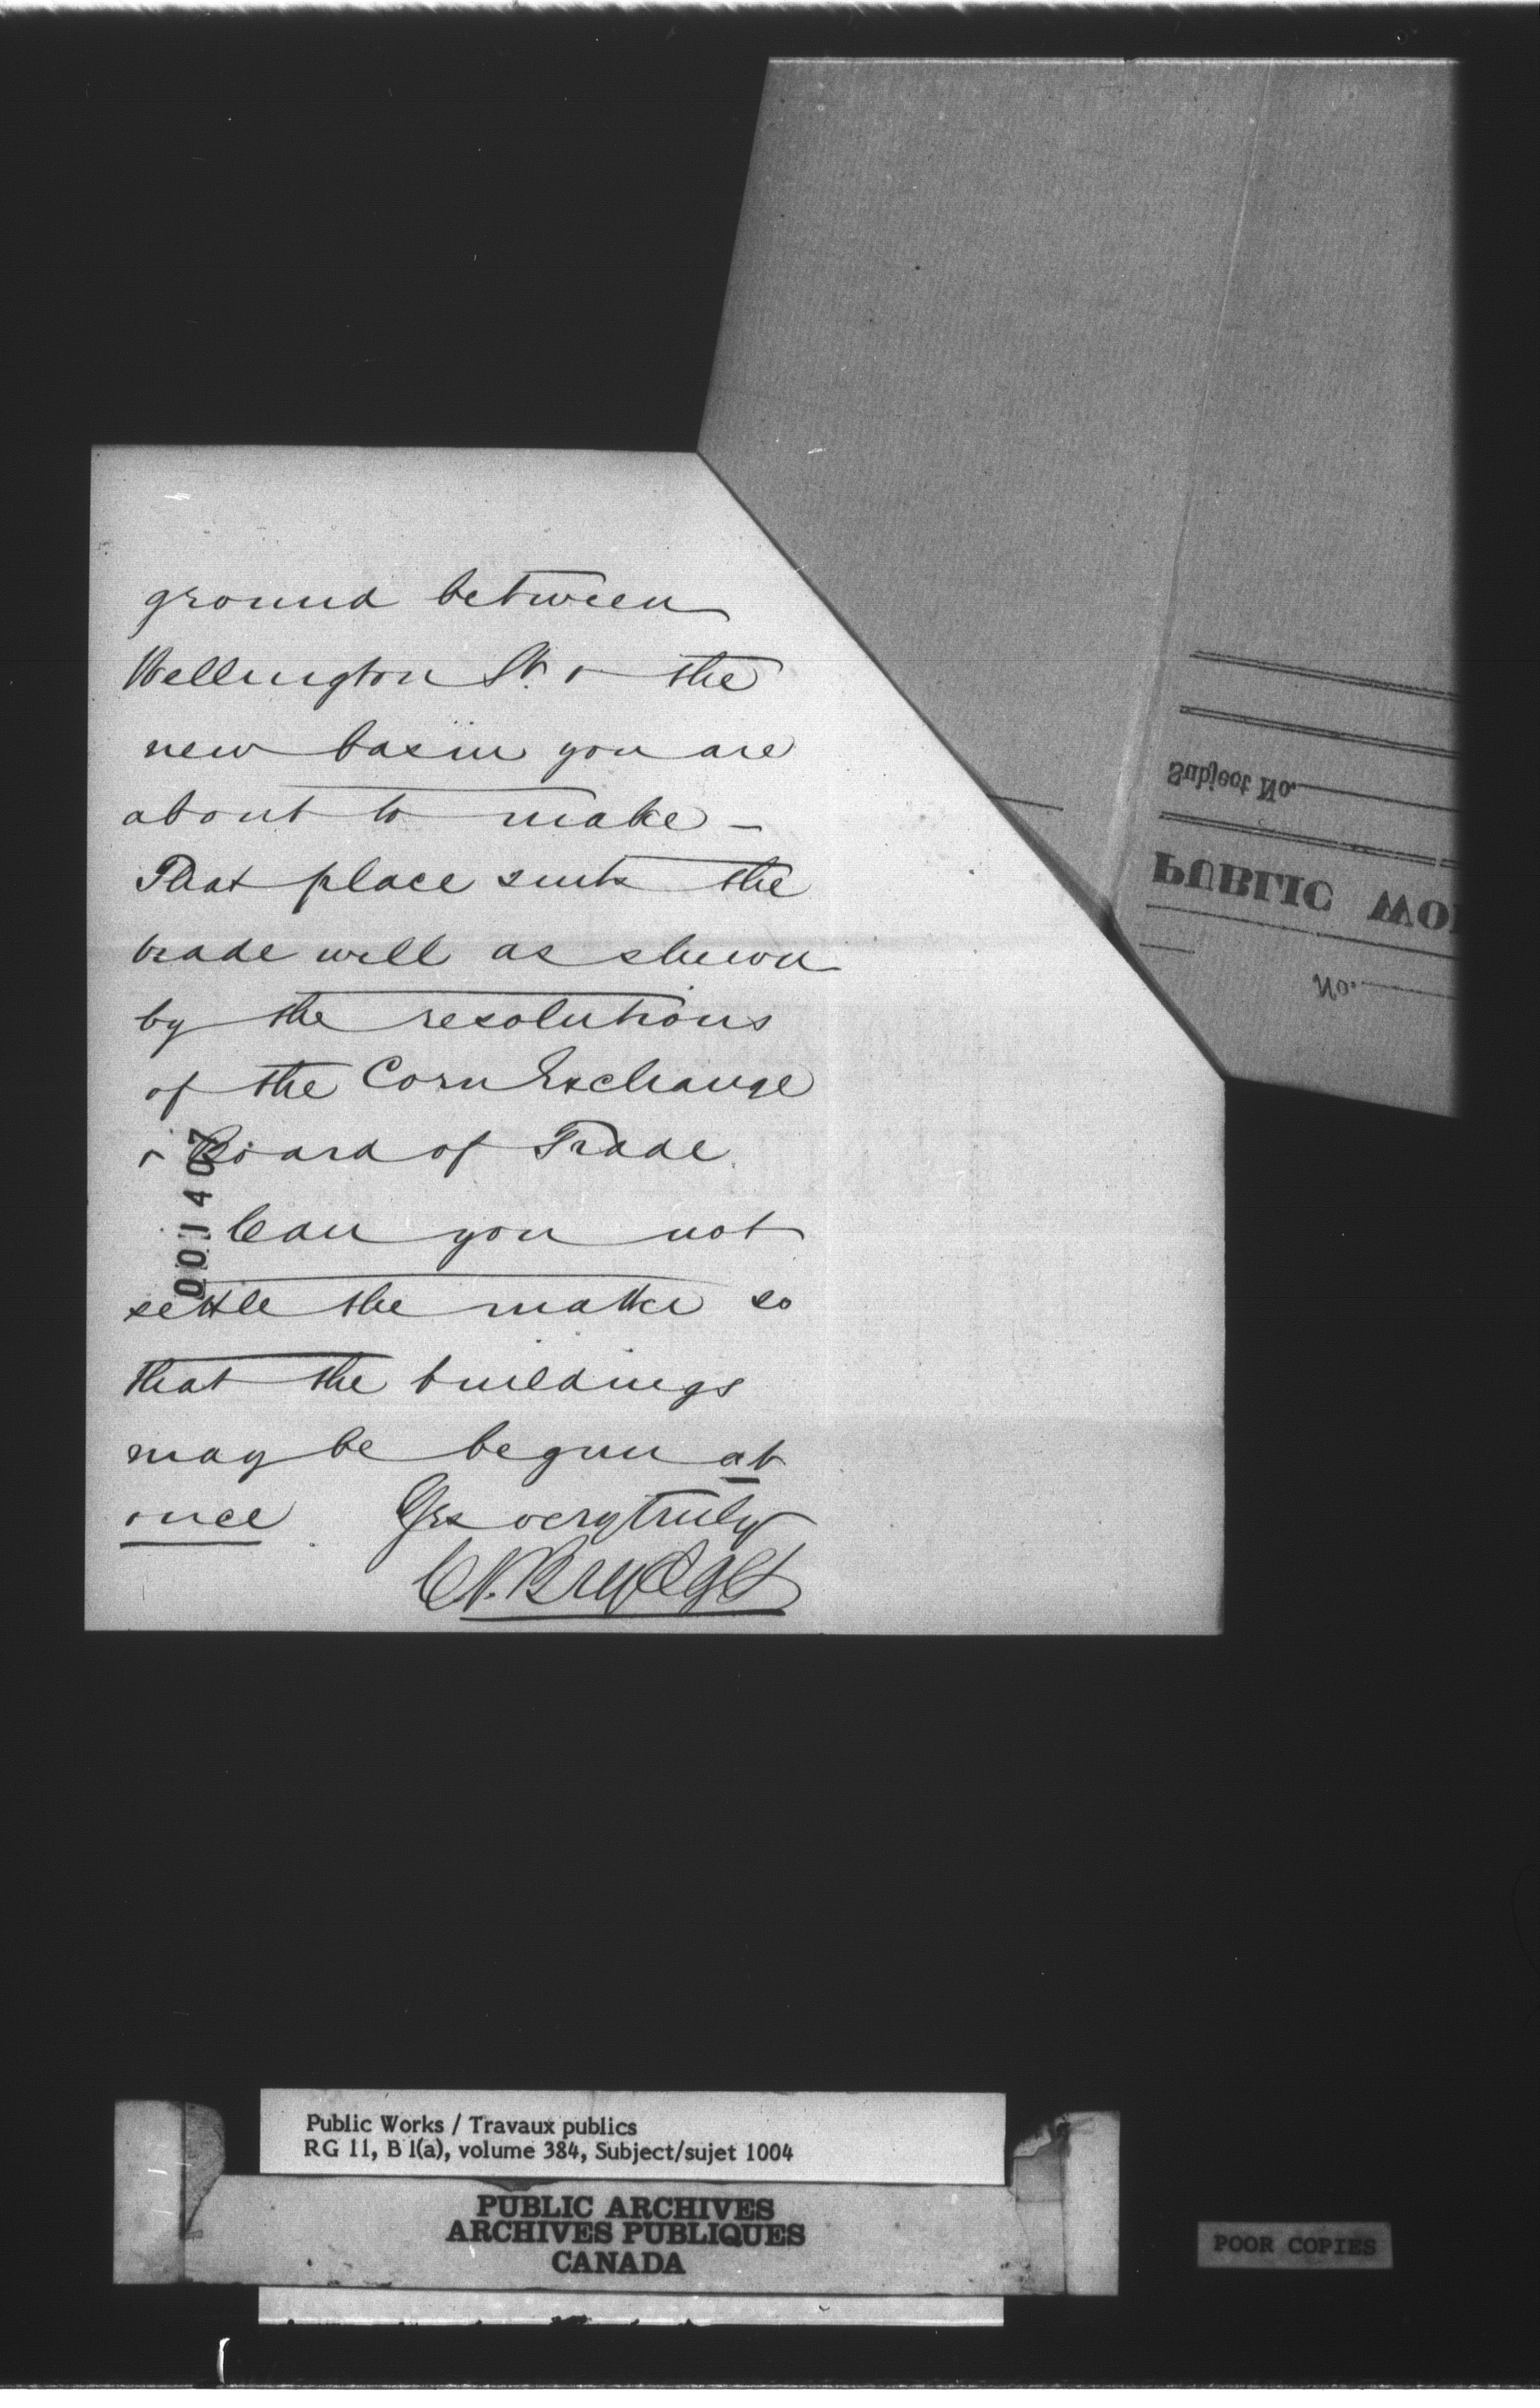 ground between
Wellington St. & the
new basin you are
about to make –
That place suits the
trade well as shewn
by the resolutions
of the Corn Exchange
& Board of Trade.
Can you not
settle the matter so
that the buildings
may be begun at
once Yrs very truly
C. J. Brydges
001407
Subject No.
PUBLIC WO
No.
Public Works / Travaux publics
RG 11, B 1(a), volume 384, Subject/sujet 1004
PUBLIC ARCHIVES
ARCHIVES PUBLIQUES
CANADA
POOR COPIES